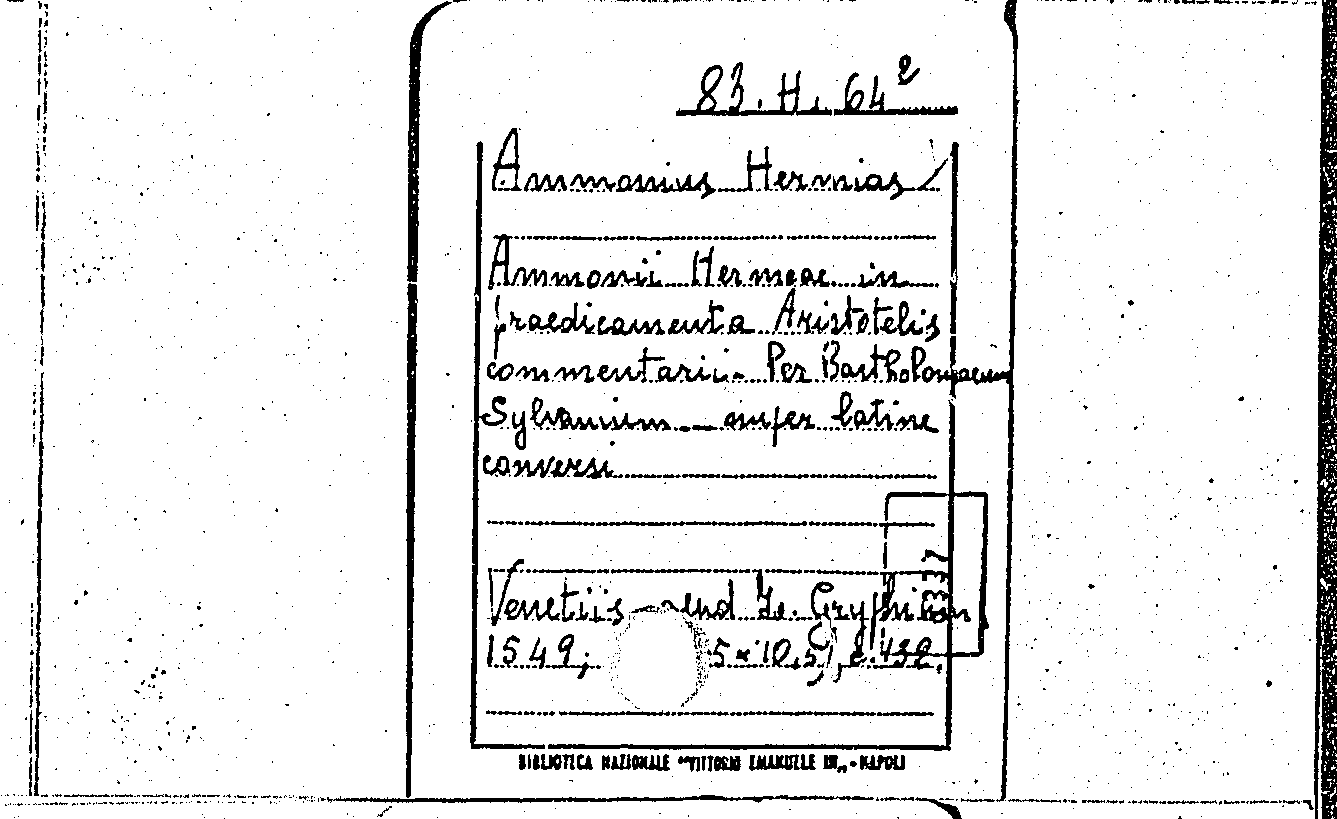 83. H. 64²
Ammonius Hermias
Ammonii Hermeae in
praedicamenta Aristotelis
commentarii - Per Bartholomaeum
Sylvanium - nuper latine
conversi
Venetiis Gryphium
1549; 5 x 10,5), c. 132.
BIBLIOTECA NAZIONALE "VITTORIO EMANUELE III" - NAPOLI